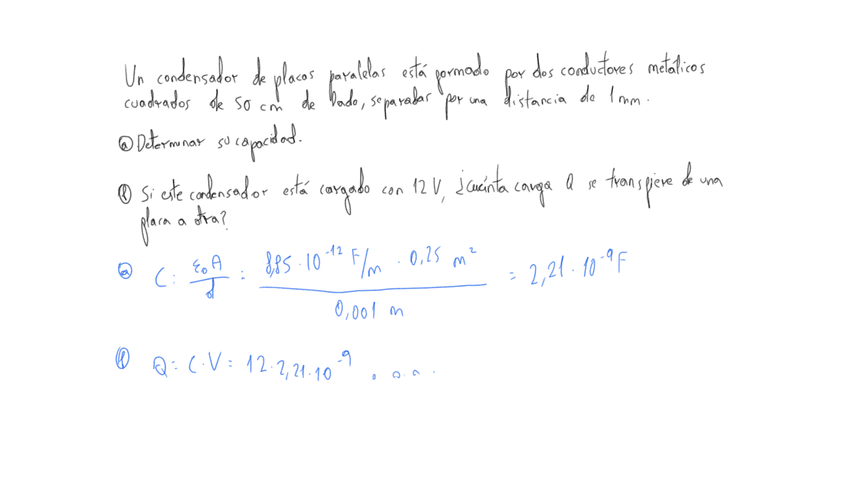 Un condensador de placas paralelas está formado por dos conductores metálicos
cuadrados de 50 cm de lado, separadas por una distancia de 1 mm.
ⓐ Determinar su capacidad.
ⓑ Si este condensador está cargado con 12 V, ¿cuánta carga Q se transfiere de una
placa a otra?
ⓐ C: ε₀A/d = 8,85 · 10⁻¹² F/m · 0,25 m² / 0,001 m = 2,21 · 10⁻⁹ F
ⓑ Q = C·V = 12 · 2,21 · 10⁻⁹